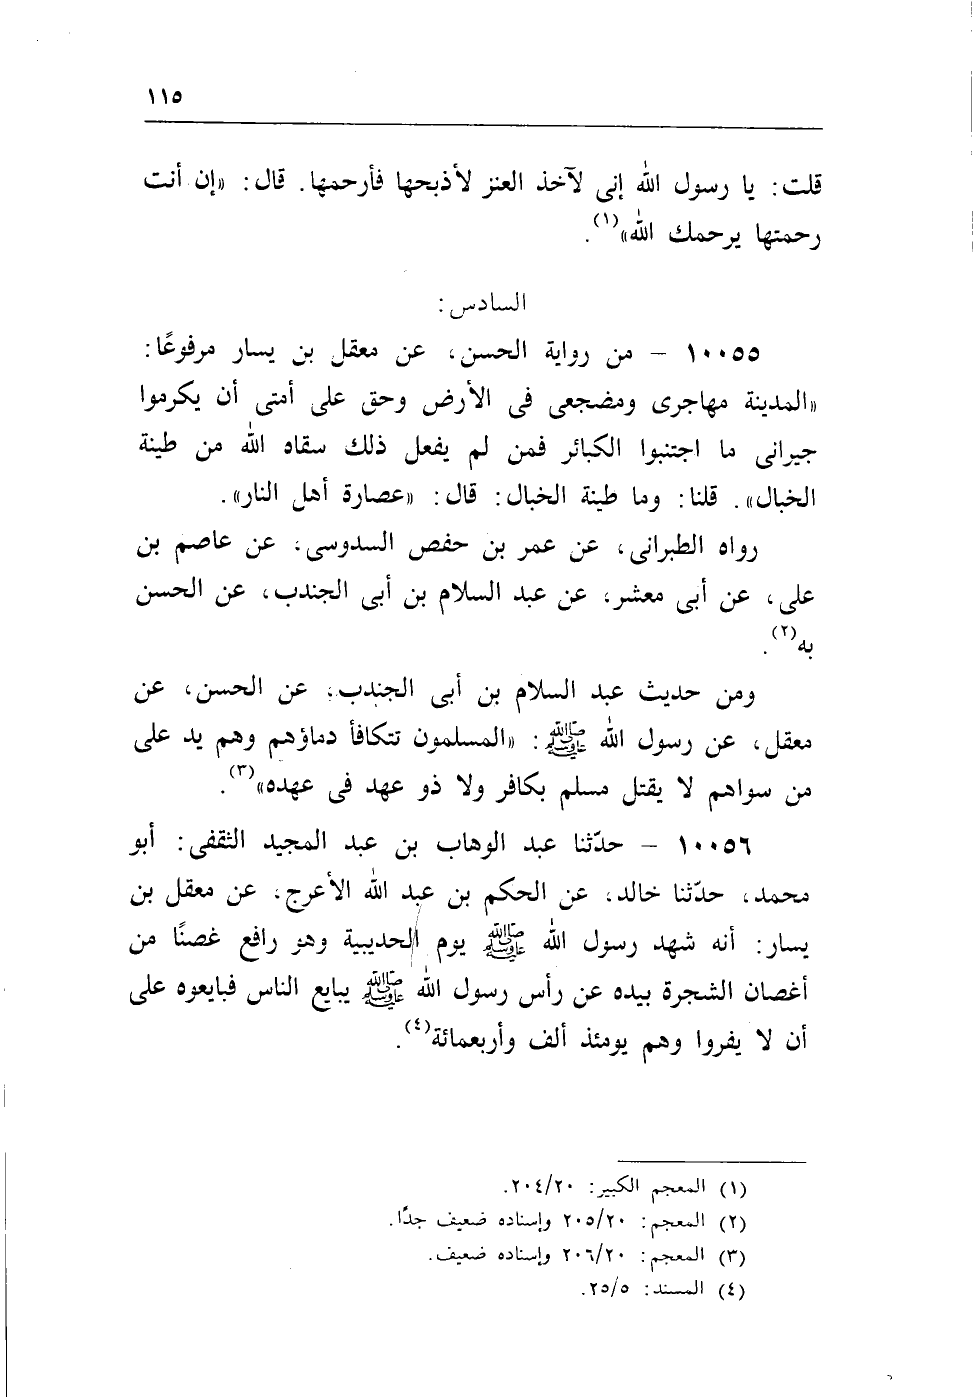 ١١٥
قلت: يا رسول الله إنى لآخذ العنز لأذبحها فأرحمها. قال: «إن أنت
رحمتها يرحمك الله»(١).
السادس:
١٠٠٥٥ - من رواية الحسن، عن معقل بن يسار مرفوعًا:
«المدينة مهاجرى ومضجعى فى الأرض وحق على أمتى أن يكرموا
جيرانى ما اجتنبوا الكبائر فمن لم يفعل ذلك سقاه الله من طينة
الخبال». قلنا: وما طينة الخبال: قال: «عصارة أهل النار».
رواه الطبرانى، عن عمر بن حفص السدوسى، عن عاصم بن
على، عن أبى معشر، عن عبد السلام بن أبى الجندب، عن الحسن
به(٢).
ومن حديث عبد السلام بن أبى الجندب، عن الحسن، عن
معقل، عن رسول الله ﷺ: «المسلمون تتكافأ دماؤهم وهم يد على
من سواهم لا يقتل مسلم بكافر ولا ذو عهد فى عهده»(٣).
١٠٠٥٦ - حدّثنا عبد الوهاب بن عبد المجيد الثقفى: أبو
محمد، حدّثنا خالد، عن الحكم بن عبد الله الأعرج، عن معقل بن
يسار: أنه شهد رسول الله ﷺ يوم الحديبية وهو رافع غصنًا من
أغصان الشجرة بيده عن رأس رسول الله ﷺ يبايع الناس فبايعوه على
أن لا يفروا وهم يومئذ ألف وأربعمائة(٤).
(١) المعجم الكبير: ٢٠٤/٢٠.
(٢) المعجم: ٢٠٥/٢٠ وإسناده ضعيف جدًا.
(٣) المعجم: ٢٠٦/٢٠ وإسناده ضعيف.
(٤) المسند: ٢٥/٥.